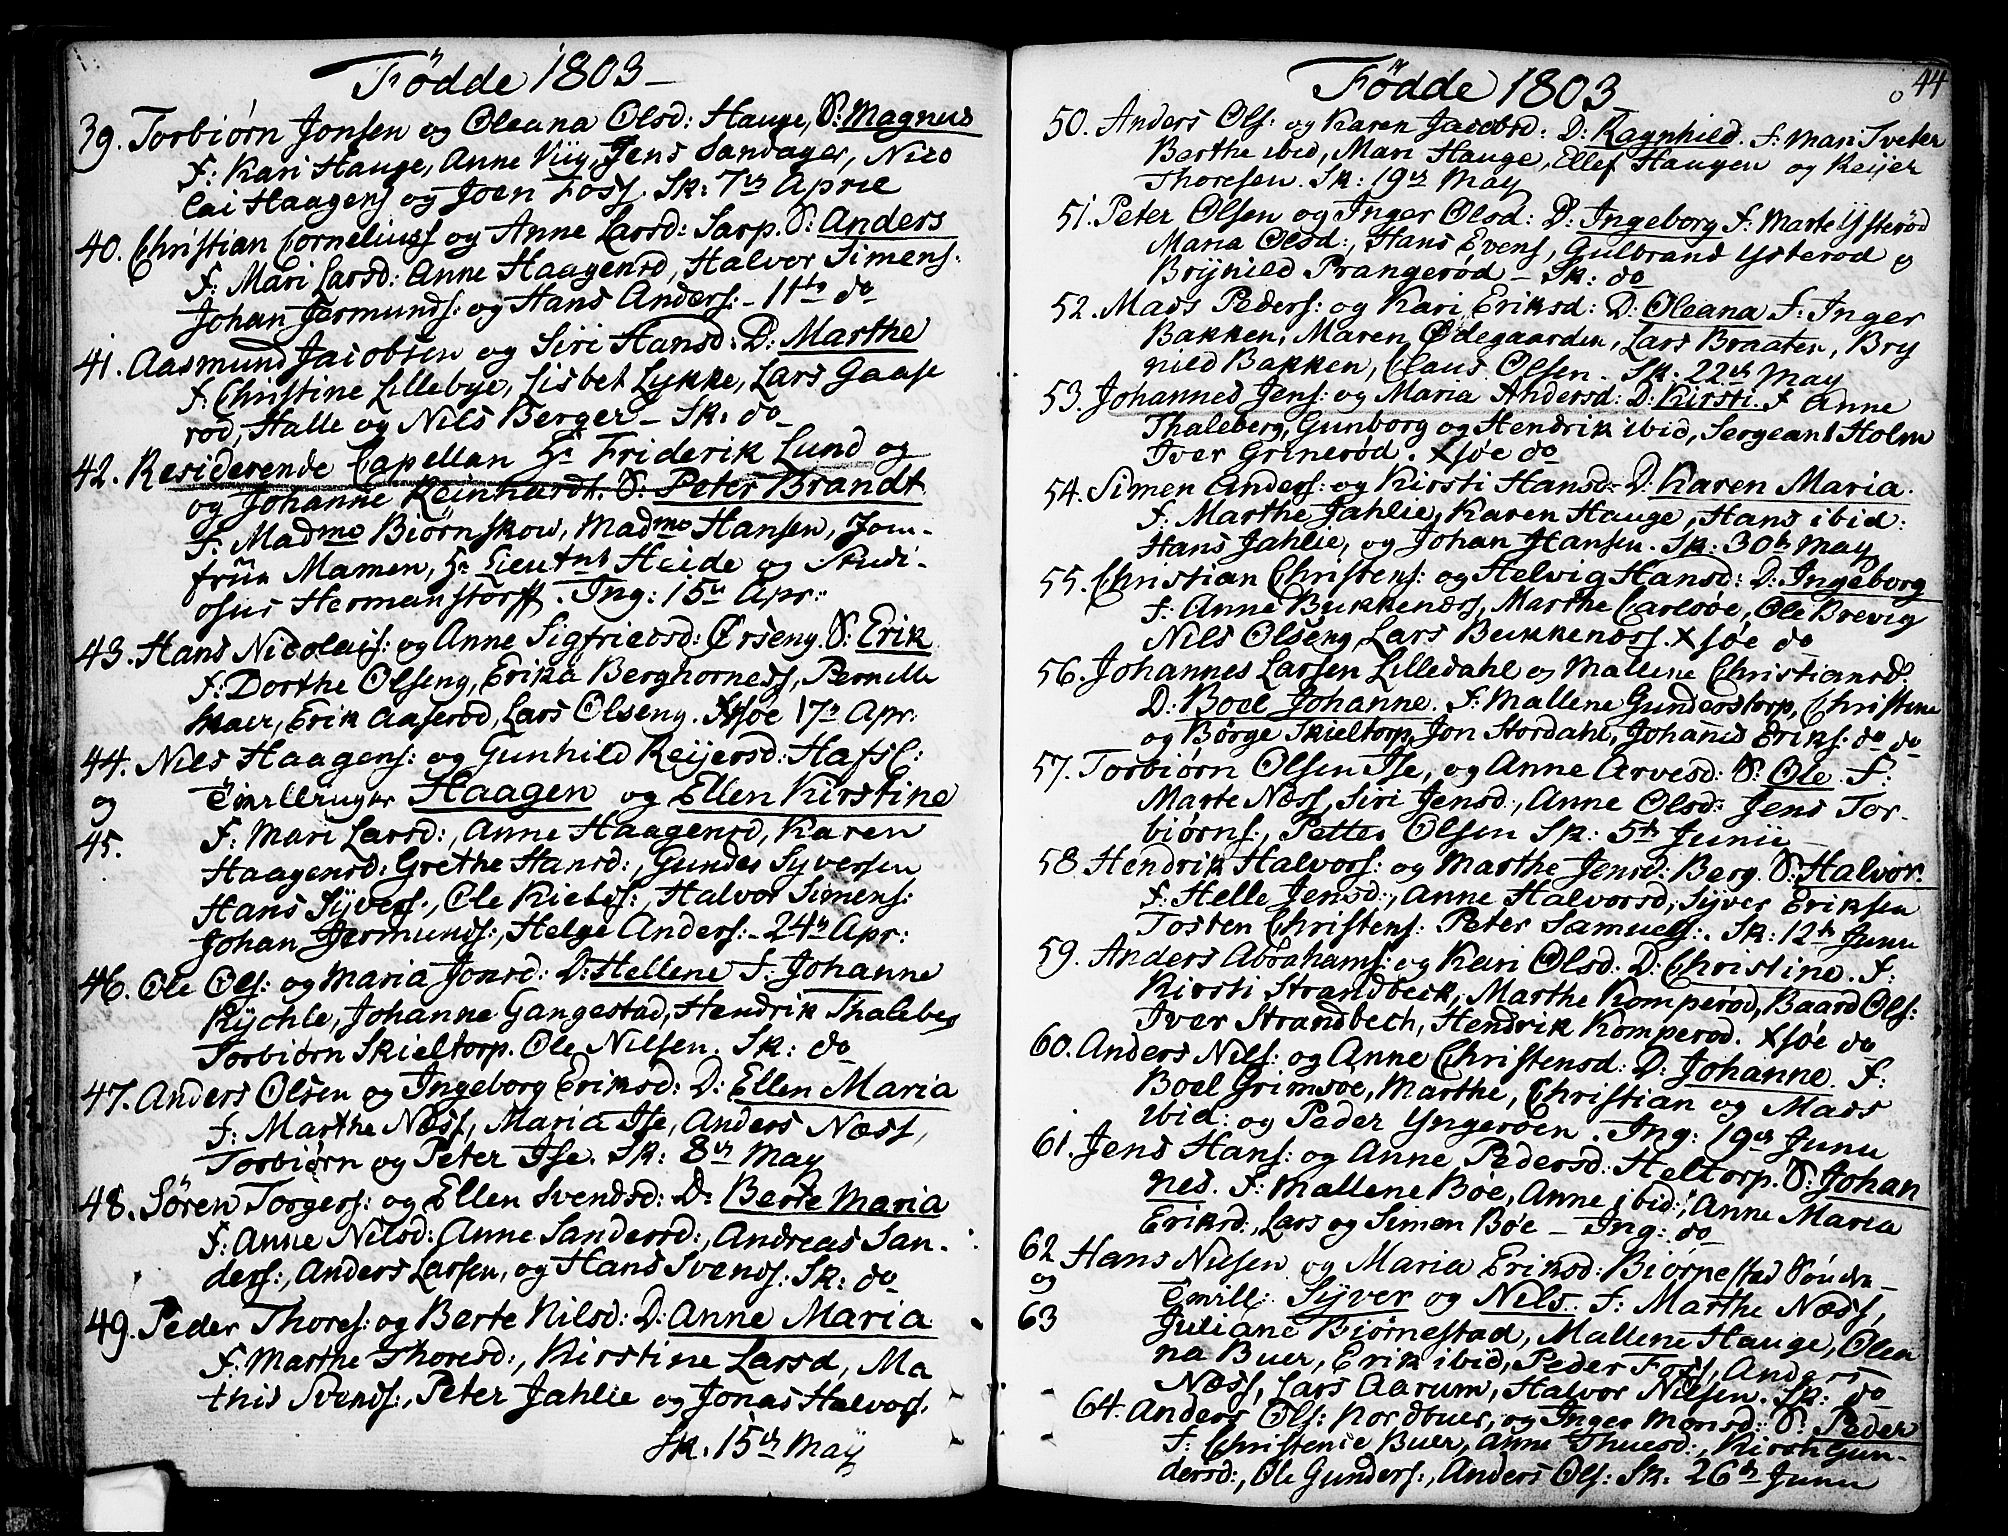 Födde 1803 –
39. Torbiørn Jonsen og Oleana Olsd: Hauge, S: Magnus
F: Kari Hauge, Anne Viig, Jens Sandager, Nico
lai Haagens og Joen Foss. Sk: 7de Aprie
40. Christian Corneliuss og Anne Larsd: Sarp. S: Anders
F: Mari Larsd: Anne Haagensd, Halvor Simens:
Johan Jermunds: og Hans Anders: – 11te do
41. Aasmund Jacobsen og Siri Hansd: D: Marthe
F: Christine Lillebye, Lisbet Lykke, Lars Gaase
rød, Halle og Nils Berger – Sk: do
42. Residerende Capellan Hr Friderik Lund og
og Johanne Reinhardt. S: Peter Brandt
F: Madme Biørnskow, Madme Hansen, Jom-
frue Mamen, Hr Lieutnt Heide og Studi-
osus Hermanstorff. Ing: 15de Apr:
43. Hans Nicolais: og Anne Sigfriedsd: Ørseng S: Erik
F: Dorthe Olseng, Erika Berghorness, Pernille
Moer, Erik Aaserød, Lars Olseng. Xsøe 17de Apr:
44. Nils Haagens: og Gunhild Reijersd: Hafsl:
og Tvillinger Haagen og Ellen Kirstine
45. F: Mari Larsd:, Anne Haagensd, Karen
Haagensd: Grethe Hansd:, Gunder Syversen
Hans Syvers:, Ole Kields:, Halvor Simens:
Johan Jermunds:, Helge Anders: – 24de Apr:
46. Ole Ols: og Maria Jonsd: D: Hellene F: Johanne
Rychle, Johanne Gangestad, Hendrik Thaleberg
Torbiørn Skieltorp. Ole Nilsen. Sk: do
47. Anders Olsen og Ingeborg Eriksd: D: Ellen Maria
F: Marthe Næss, Maria Ise, Anders Næss,
Torbiørn og Peter Ise. Sk: 8de May
48. Søren Torgers: og Ellen Svendsd: D: Berte Maria
F: Anne Nilsd: Anne Sandersd:, Andreas San-
ders:, Anders Larsen, og Hans Svends: Sk: do
49. Peder Thores: og Berte Nilsd: D: Anne Maria
F: Marthe Thoresd:, Kirstine Larsd, Ma
this Svends:, Peter Jahlie og Jonas Halvors.
Sk. 15de May
Födde 1803
44
50. Anders Ols: og Karen Jacobsd: D: Ragnhild. F: Mari Tveter
Berthe ibid, Mari Hauge, Ellef Haugen og Reijer
Thoresen. Sk: 19de May
51. Peter Olsen og Inger Olsd: D: Ingeborg F: Marte Ysterød
Maria Olsd:, Hans Evens, Gulbrand Ysterød og
Brynild Prangerød – Sk: do
52. Mads Peders: og Kari Eriksd: D: Oleana F: Inger
Bakken, Maren Ødegaarden, Lars Braaten, Bry
nild Bakken, Claus Olsen. Sk. 22de May
53. Johannes Jens: og Maria Andersd: D: Kirsti. F Anne
Thaleberg, Gunborg og Hendrik ibid, Sergeant Holm
Iver Grinerød. Xsøe do
54. Simen Anders: og Kirsti Hansd: D: Karen Maria.
F: Marthe Jahlie, Karen Hauge, Hans ibid:
Hans Jahlie, og Johan Hansen. Sk: 30te May
55. Christian Christens: og Helvig Hansd: D: Ingeborg
F: Anne Bukkenæss, Marthe Carlsøe, Ole Brevig
Nils Olseng, Lars Bukkenæss. Xsøe do
56. Johannes Larsen Lilledahl og Mallene Christiansd:
D: Boel Johanne. F: Mallene Gunderstorp, Christine
og Børge Skieltorp, Jon Stordahl, Johans Eriks: do do
57. Torbiørn Olsen Ise, og Anne Arvesd: S: Ole. F:
Marte Næss, Siri Jensd:, Anne Olsd: Jens Tor-
biørns:, Petter Olsen Sk: 5te Junii
58. Hendrik Halvors: og Marthe Jensd: Berg. S: Halvor.
F: Helle Jensd:, Anne Halvorsd, Syver Eriksen
Tosten Christens: Peter Samuels:. Sk: 12te Junii
59. Anders Abrahams: og Kari Olsd: D: Christine. F:
Kirsti Strandbeck, Marthe Komperød, Baard Ols:
Iver Strandbech, Hendrik Komperød. Xsøe do
60. Anders Nils: og Anne Christensd: D: Johanne. F:
Boel Grimsøe, Marthe, Christian og Mads
ibid: og Peder Yngerøen. Ing: 19de Junii
61. Jens Hans: og Anne Pedersd: Heltorp. S: Johan
nes. F: Mallene Bøe, Anne ibid:, Anne Maria
Eriksd:, Lars og Simen Bøe – Ing: do
62 Hans Nilsen og Maria Eriksd: Biørnestad Søndre –
og Tvill: Syver og Nils. F: Marthe Næss,
63 Juliane Biørnestad, Mallene Hauge, Olea
na Buer, Erik ibid, Peder Foss, Anders
Næss, Lars Aarum, Halvor Nilsen. Sk: do
64. Anders Ols: Nordbuer, og Inger Monsd: S: Peder
F: Christense Buer, Anne Thuesd:, Kirsti Gun-
dersd:, Ole Gunders:, Anders Ols: Sk: 26de Junii